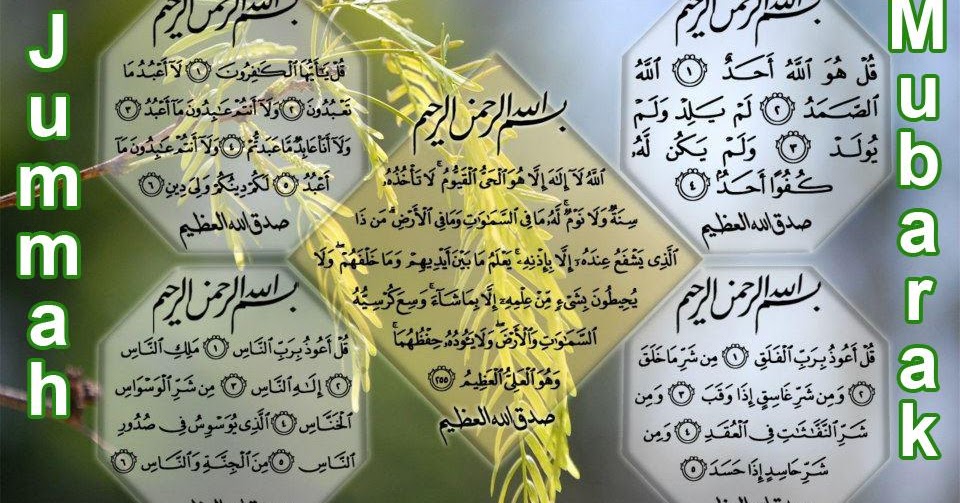 Jummah
Mubarak
بسم الله الرحمن الرحيم
قُلْ هُوَ ٱللَّهُ أَحَدٌ ١ ٱللَّهُ
ٱلصَّمَدُ ٢ لَمْ يَلِدْ وَلَمْ
يُولَدْ ٣ وَلَمْ يَكُن لَّهُۥ
كُفُوًا أَحَدٌۢ ٤
صدق الله العظيم
بسم الله الرحمن الرحيم
قُلْ يَٰٓأَيُّهَا ٱلْكَٰفِرُونَ ١ لَآ أَعْبُدُ مَا
تَعْبُدُونَ ٢ وَلَآ أَنتُمْ عَٰبِدُونَ مَآ أَعْبُدُ ٣
وَلَآ أَنَا۠ عَابِدٌ مَّا عَبَدتُّمْ ٤ وَلَآ أَنتُمْ عَٰبِدُونَ مَآ
أَعْبُدُ ٥ لَكُمْ دِينُكُمْ وَلِىَ دِينِ ٦
صدق الله العظيم
بسم الله الرحمن الرحيم
ٱللَّهُ لَآ إِلَٰهَ إِلَّا هُوَ ٱلْحَىُّ ٱلْقَيُّومُ ۚ لَا تَأْخُذُهُۥ
سِنَةٌ وَلَا نَوْمٌ ۚ لَّهُۥ مَا فِى ٱلسَّمَٰوَٰتِ وَمَا فِى ٱلْأَرْضِ ۗ مَن ذَا
ٱلَّذِى يَشْفَعُ عِندَهُۥٓ إِلَّا بِإِذْنِهِۦ ۚ يَعْلَمُ مَا بَيْنَ أَيْدِيهِمْ وَمَا خَلْفَهُمْ ۖ وَلَا
يُحِيطُونَ بِشَىْءٍ مِّنْ عِلْمِهِۦٓ إِلَّا بِمَا شَآءَ ۚ وَسِعَ كُرْسِيُّهُ
ٱلسَّمَٰوَٰتِ وَٱلْأَرْضَ ۖ وَلَا يَـُٔودُهُۥ حِفْظُهُمَا ۚ
وَهُوَ ٱلْعَلِىُّ ٱلْعَظِيمُ ٢٥٥
صدق الله العظيم
بسم الله الرحمن الرحيم
قُلْ أَعُوذُ بِرَبِّ ٱلْفَلَقِ ١ مِن شَرِّ مَا خَلَقَ
٢ وَمِن شَرِّ غَاسِقٍ إِذَا وَقَبَ ٣ وَمِن
شَرِّ ٱلنَّفَّٰثَٰتِ فِى ٱلْعُقَدِ ٤ وَمِن
شَرِّ حَاسِدٍ إِذَا حَسَدَ ٥
بسم الله الرحمن الرحيم
قُلْ أَعُوذُ بِرَبِّ ٱلنَّاسِ ١ مَلِكِ ٱلنَّاسِ
٢ إِلَٰهِ ٱلنَّاسِ ٣ مِن شَرِّ ٱلْوَسْوَاسِ
ٱلْخَنَّاسِ ٤ ٱلَّذِى يُوَسْوِسُ فِى صُدُورِ
ٱلنَّاسِ ٥ مِنَ ٱلْجِنَّةِ وَٱلنَّاسِ ٦